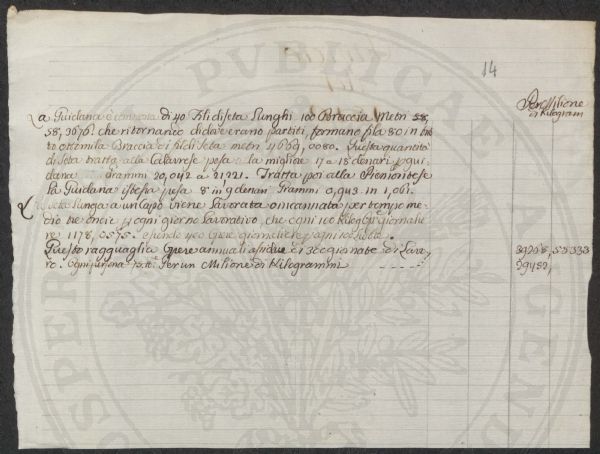 14
Per Milione
di Kilogram
La Guidana è composta di 40 Fili di seta lunghi 100 Braccia Metri 58,
58,3676. che ritornando di dove erano partiti, formano p la 80 in
to ottomila Braccia e i fil di seta metri 4669,0080. Questa quantità
di seta tratta alla Calavrese pesa la migliore 17 a 18 denari p gui
dana Grammi 20,042 a 21,221. Tratta poi alla Piemontese
la Guidana istessa pesa 8 in 9 denari Grammi 0,943 in 1,061.
La seta lunga a un Capo viene lavorata o incannata per tempo me
dio tre oncie p ogni giorno lavorativo, che ogni 100 Kilog
re 1178,0575. essendo 400 Opere giornaliere p ogni 100 Libbre.
Questo ragguaglia Opere annuali assidue di 300 giornate di Lavo,
ro. Per un Milione di Kilogrammi - - - -
39268,55333
29452,